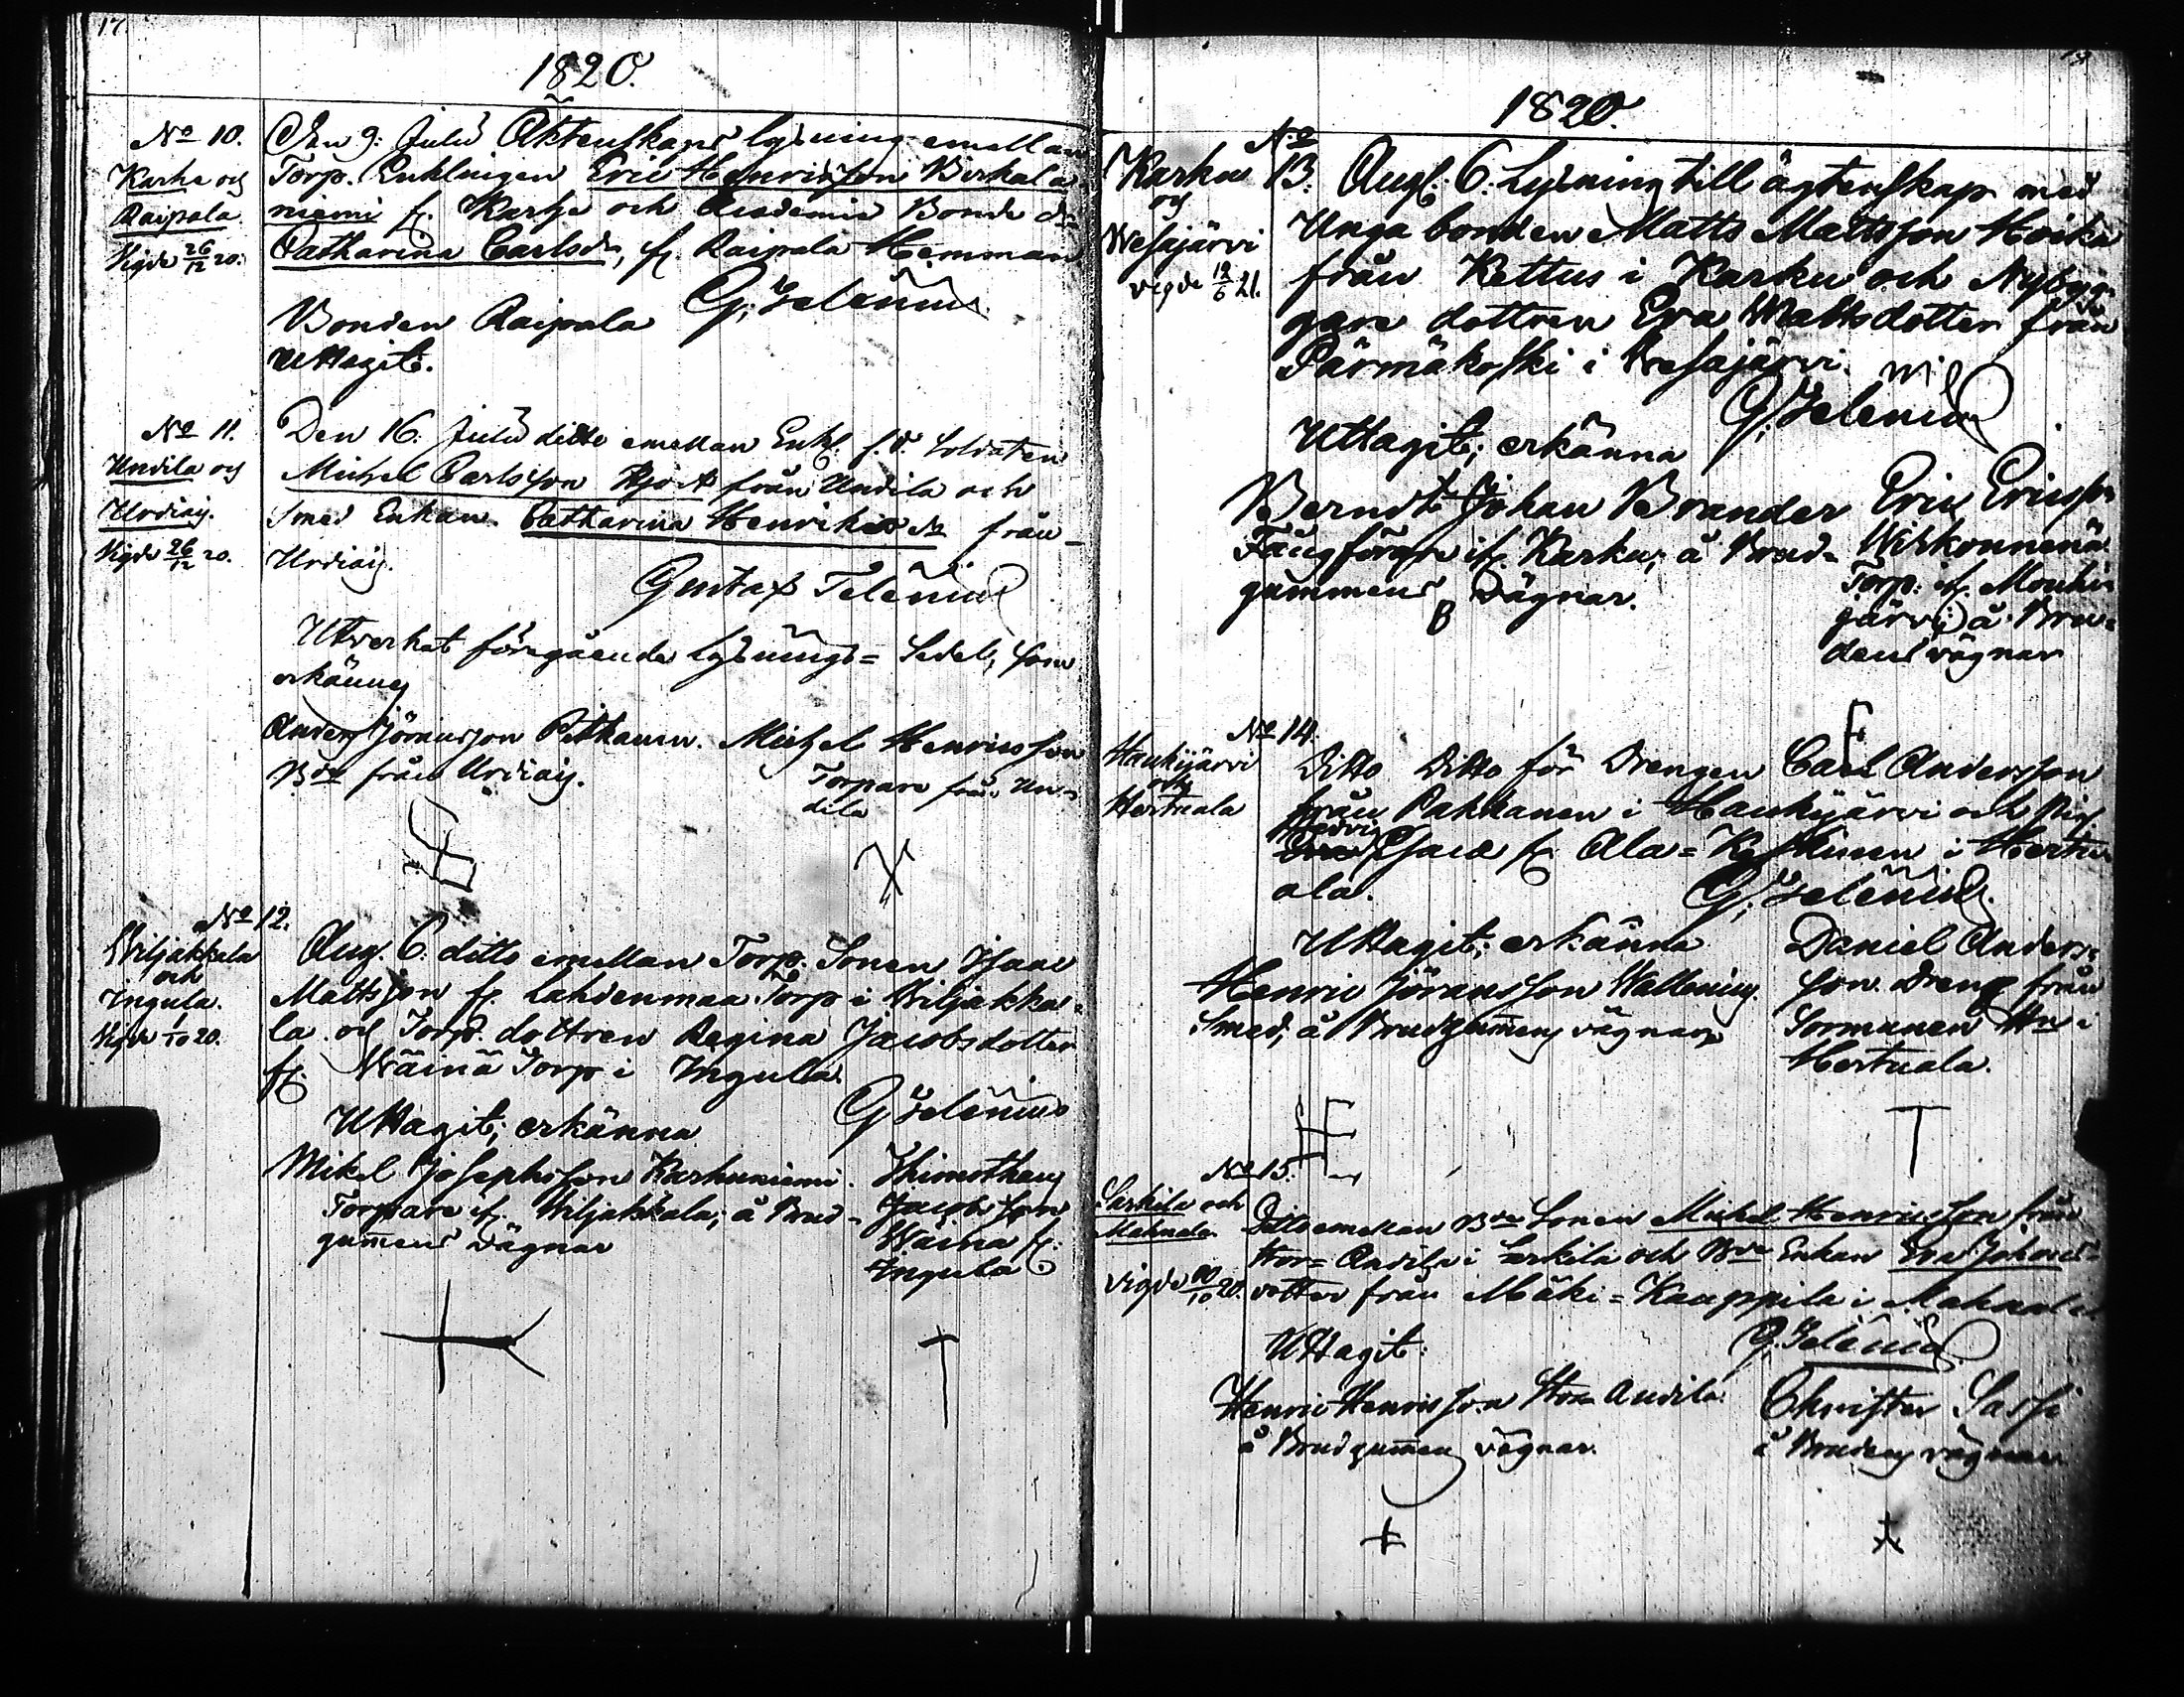 17.
1820.
No 10.
Karhe och
Raipala.
Vigde 26/12 20.
Den 9: Julii Äktenskaps lysning emellan
Torp. Enklingen Eric Henricsson Birkala
niemi fr. Karhe och Academie Bonde dr
Catharina Carlsdr, fr. Raipala Hemman
G; Telenius
Bonden Raipala
Uttagit.
No 11.
Undila och
Urdiais.
Vigde 26/12 20.
Den 16. Julii ditto emellan Enkl. f.d. Soldaten
Michel Carlsson Hjort från Undila och
Smed Enkan Catharina Henriksdr från
Urdiais.
Gustaf Telenius
Utverkat föregående lysnings= Sedel, som
erkännes
Anders Jöransson Pitkanen. Michel Henricsson
Bde från Urdiais. Torpare från Un=
dila
No 12.
Wiljakkala
och
Ingula.
Vigde 1/10 20.
Aug. 6. ditto emellan Torp. Sonen Isaac
Mattsson fr. Lahdenmaa Torp i Wiljakka=
la och Torp. dottren Regina Jacobsdotter
fr. Wäinä Torp i Ingula.
G Telenius
Uttagit; erkänna
Mikel Josephsson Karhuniemi. Thimotheus
Torpare if. Wiljakkala; å Brud= Jacobsson
gummens vägnar Wäinä fr.
Ingula
1820.
Karku
och
Wesajärvi
vigde 12/6 21.
No
13. Aug. 6: Lysning till ägtenskap med
Unga bonden Matts Mattsson Hoika
från Kettus i Karku och Nybyg=
gare dottren Eva Mattsdotter från
Pärmäkoski i Wesajärvi.
G; Telenius
Uttagit; erkänna
Berndt Johan Brander Eric Ericsson
Fångförare if. Karku; å Brud=
gummens vägnar. Torp. if. Mouhi=
järvi; å Bru=
dens vägnar
No 14.
Haukijärvi
och
Hertuala
Ditto Ditto för Drengen Carl Andersson
från Pakkanen i Haukijärvi och Pig
Hedvig
fr. Ala= i Hertu=
ala.
G; Telenius.
Uttagit; erkänna Daniel Anders=
Henric Jöransson Wallenius. son Dreng från
Smed, å Brudgumens vägnar Sormunen Hn i
Hertuala.
No 15.
Sarkila och
Mahnala
vigde 20.
Ditto emellan Bde Sonen Michel Henricsson från
Stor= Andila i Sarkila och Bde Enkan Eva Johans=
dotter från Mäki= Kauppila i Mahnala.
G; Telenius
Uttagit:
Henric Henricsson Stor Andila Christer Sassi
å Brudgumens vägnar. å Brudens vägnar